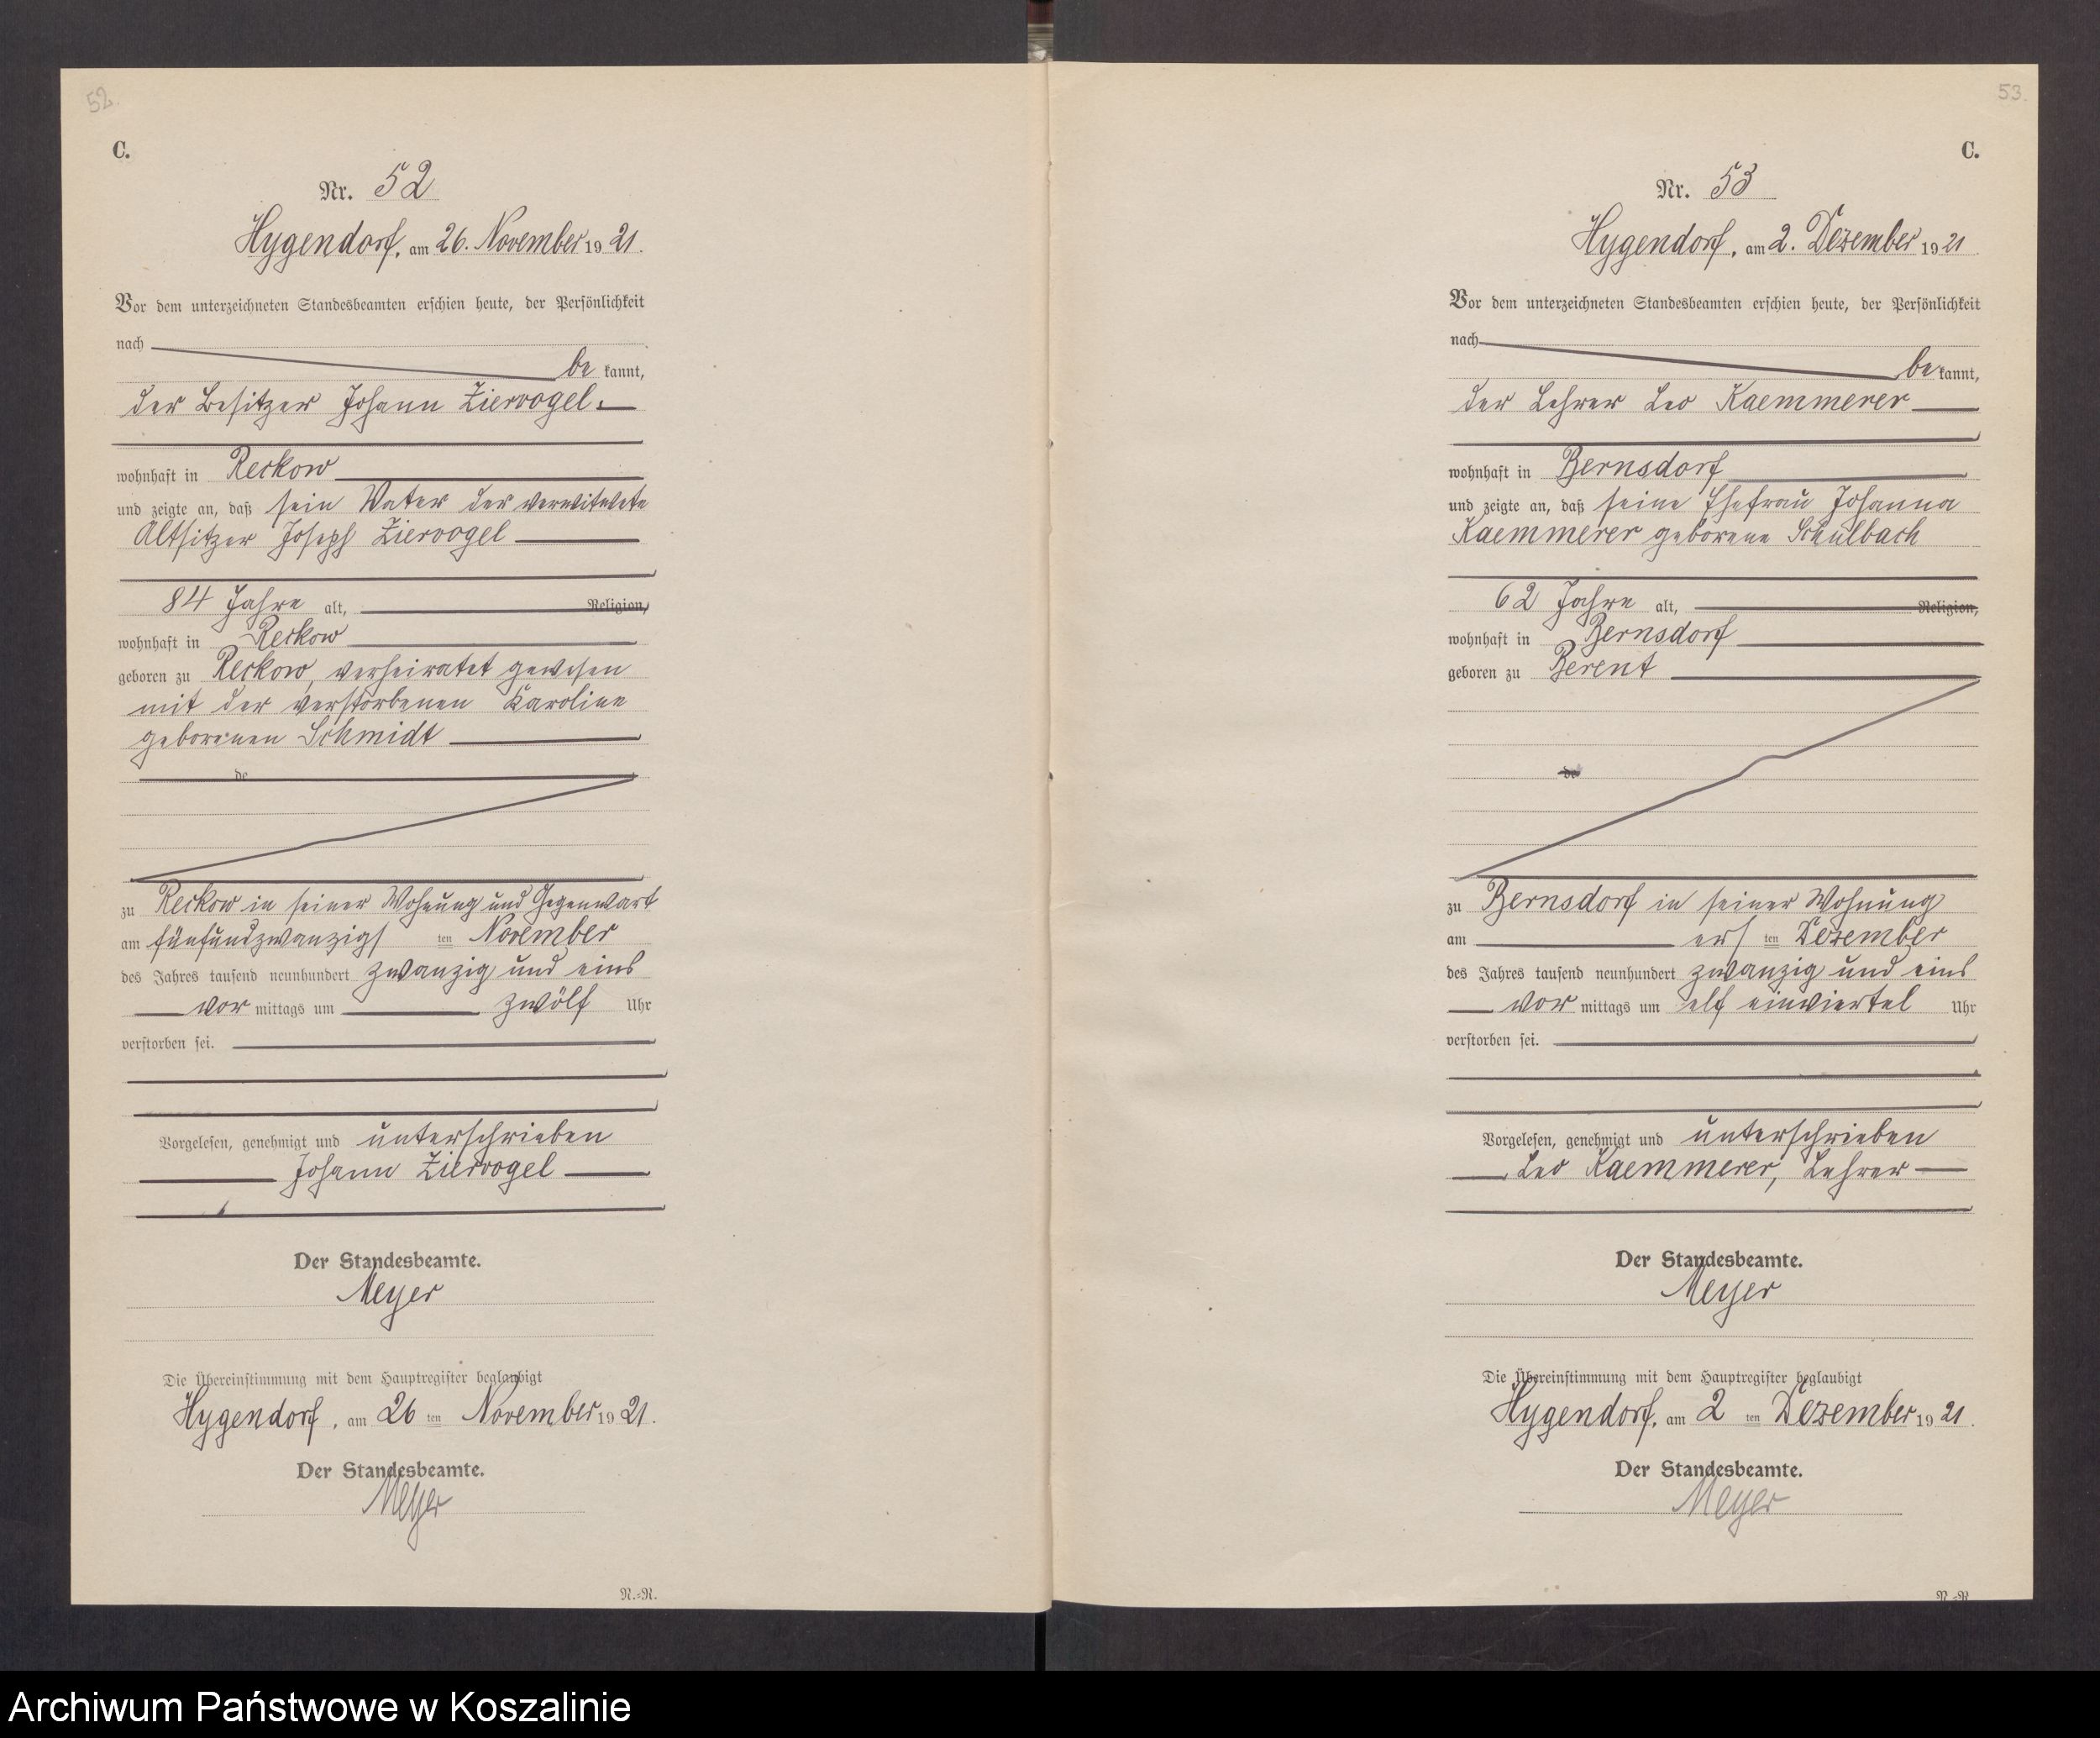 52
C.
Nr. 52
Hygendorf, am 26. November 1921.
Vor dem unterzeichneten Standesbeamten erschien heute, der Persönlichkeit
nach
be kannt,
der Besitzer Johann Ziervogel.
wohnhaft in Reckow
und zeigte an, daß sein Vater der verwitwete
Altsitzer Joseph Ziervogel
84 Jahre alt, Religion,
wohnhaft in Reckow
geboren zu Reckow, verheiratet gewesen
mit der verstorbenen Karoline
geborenen Schmidt
de
zu Reckow in seiner Wohnung und Gegenwart
am fünfundzwanzigs ten November
des Jahres tausend neunhundert zwanzig und eins
vor mittags um zwölf Uhr
verstorben sei.
Vorgelesen, genehmigt und unterschrieben
Johann Ziervogel
Der Standesbeamte.
Meyer
Die Übereinstimmung mit dem Hauptregister beglaubigt
Hygendorf, am 26 ten November 1921.
Der Standesbeamte.
Meyer
N.-N.
53.
C.
Nr. 53
Hygendorf, am 2. Dezember 1921
Vor dem unterzeichneten Standesbeamten erschien heute, der Persönlichkeit
nach
be kannt,
der Lehrer Leo Kaemmerer
wohnhaft in Bernsdorf
und zeigte an, daß seine Ehefrau Johanna
Kaemmerer geborene Schulbach
62 Jahre alt, Religion,
wohnhaft in Bernsdorf
geboren zu Berent
de
zu Bernsdorf in seiner Wohnung
am ers ten Dezember
des Jahres tausend neunhundert zwanzig und eins
vor mittags um elf einviertel Uhr
verstorben sei.
Vorgelesen, genehmigt und unterschrieben
Leo Kaemmerer, Lehrer
Der Standesbeamte.
Meyer
Die Übereinstimmung mit dem Hauptregister beglaubigt
Hygendorf, am 2 ten Dezember 1921.
Der Standesbeamte.
Meyer
N.-N.
Archiwum Państwowe w Koszalinie